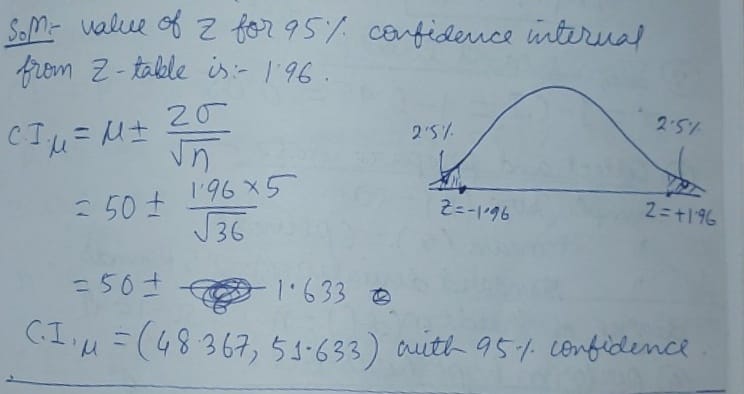 Soln:- value of Z for 95% confidence interval
from Z-table is:- 1.96.
C.I.μ = μ ± Zσ/√n
= 50 ± 1.96×5/√36
= 50 ± 1.633
C.I.μ = (48.367, 51.633) with 95% confidence.
2.5%
2.5%
Z=-1.96
Z=+1.96